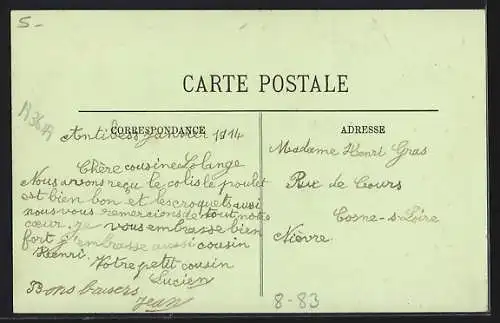 5-
A3649
CARTE POSTALE
CORRESPONDANCE
ADRESSE
Antibes Janvier 1914
Chère cousine Solange
Nous avons reçu le colis le poulet
est bien bon et les croquets aussi
nous vous remercions de tout notre
cœur, je vous embrasse bien
fort J'embrasse aussi cousin
Henri. Votre petit cousin
Lucien
Bons baisers
Jean
Madame Henri Gras
Rue de Cours
Cosne-s-Loire
Nièvre
8-83